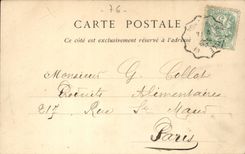 76
CARTE POSTALE
Ce côté est exclusivement réservé à l'adresse
Monsieur G. Collot
Produits Alimentaires
217, Rue St Maur
Paris